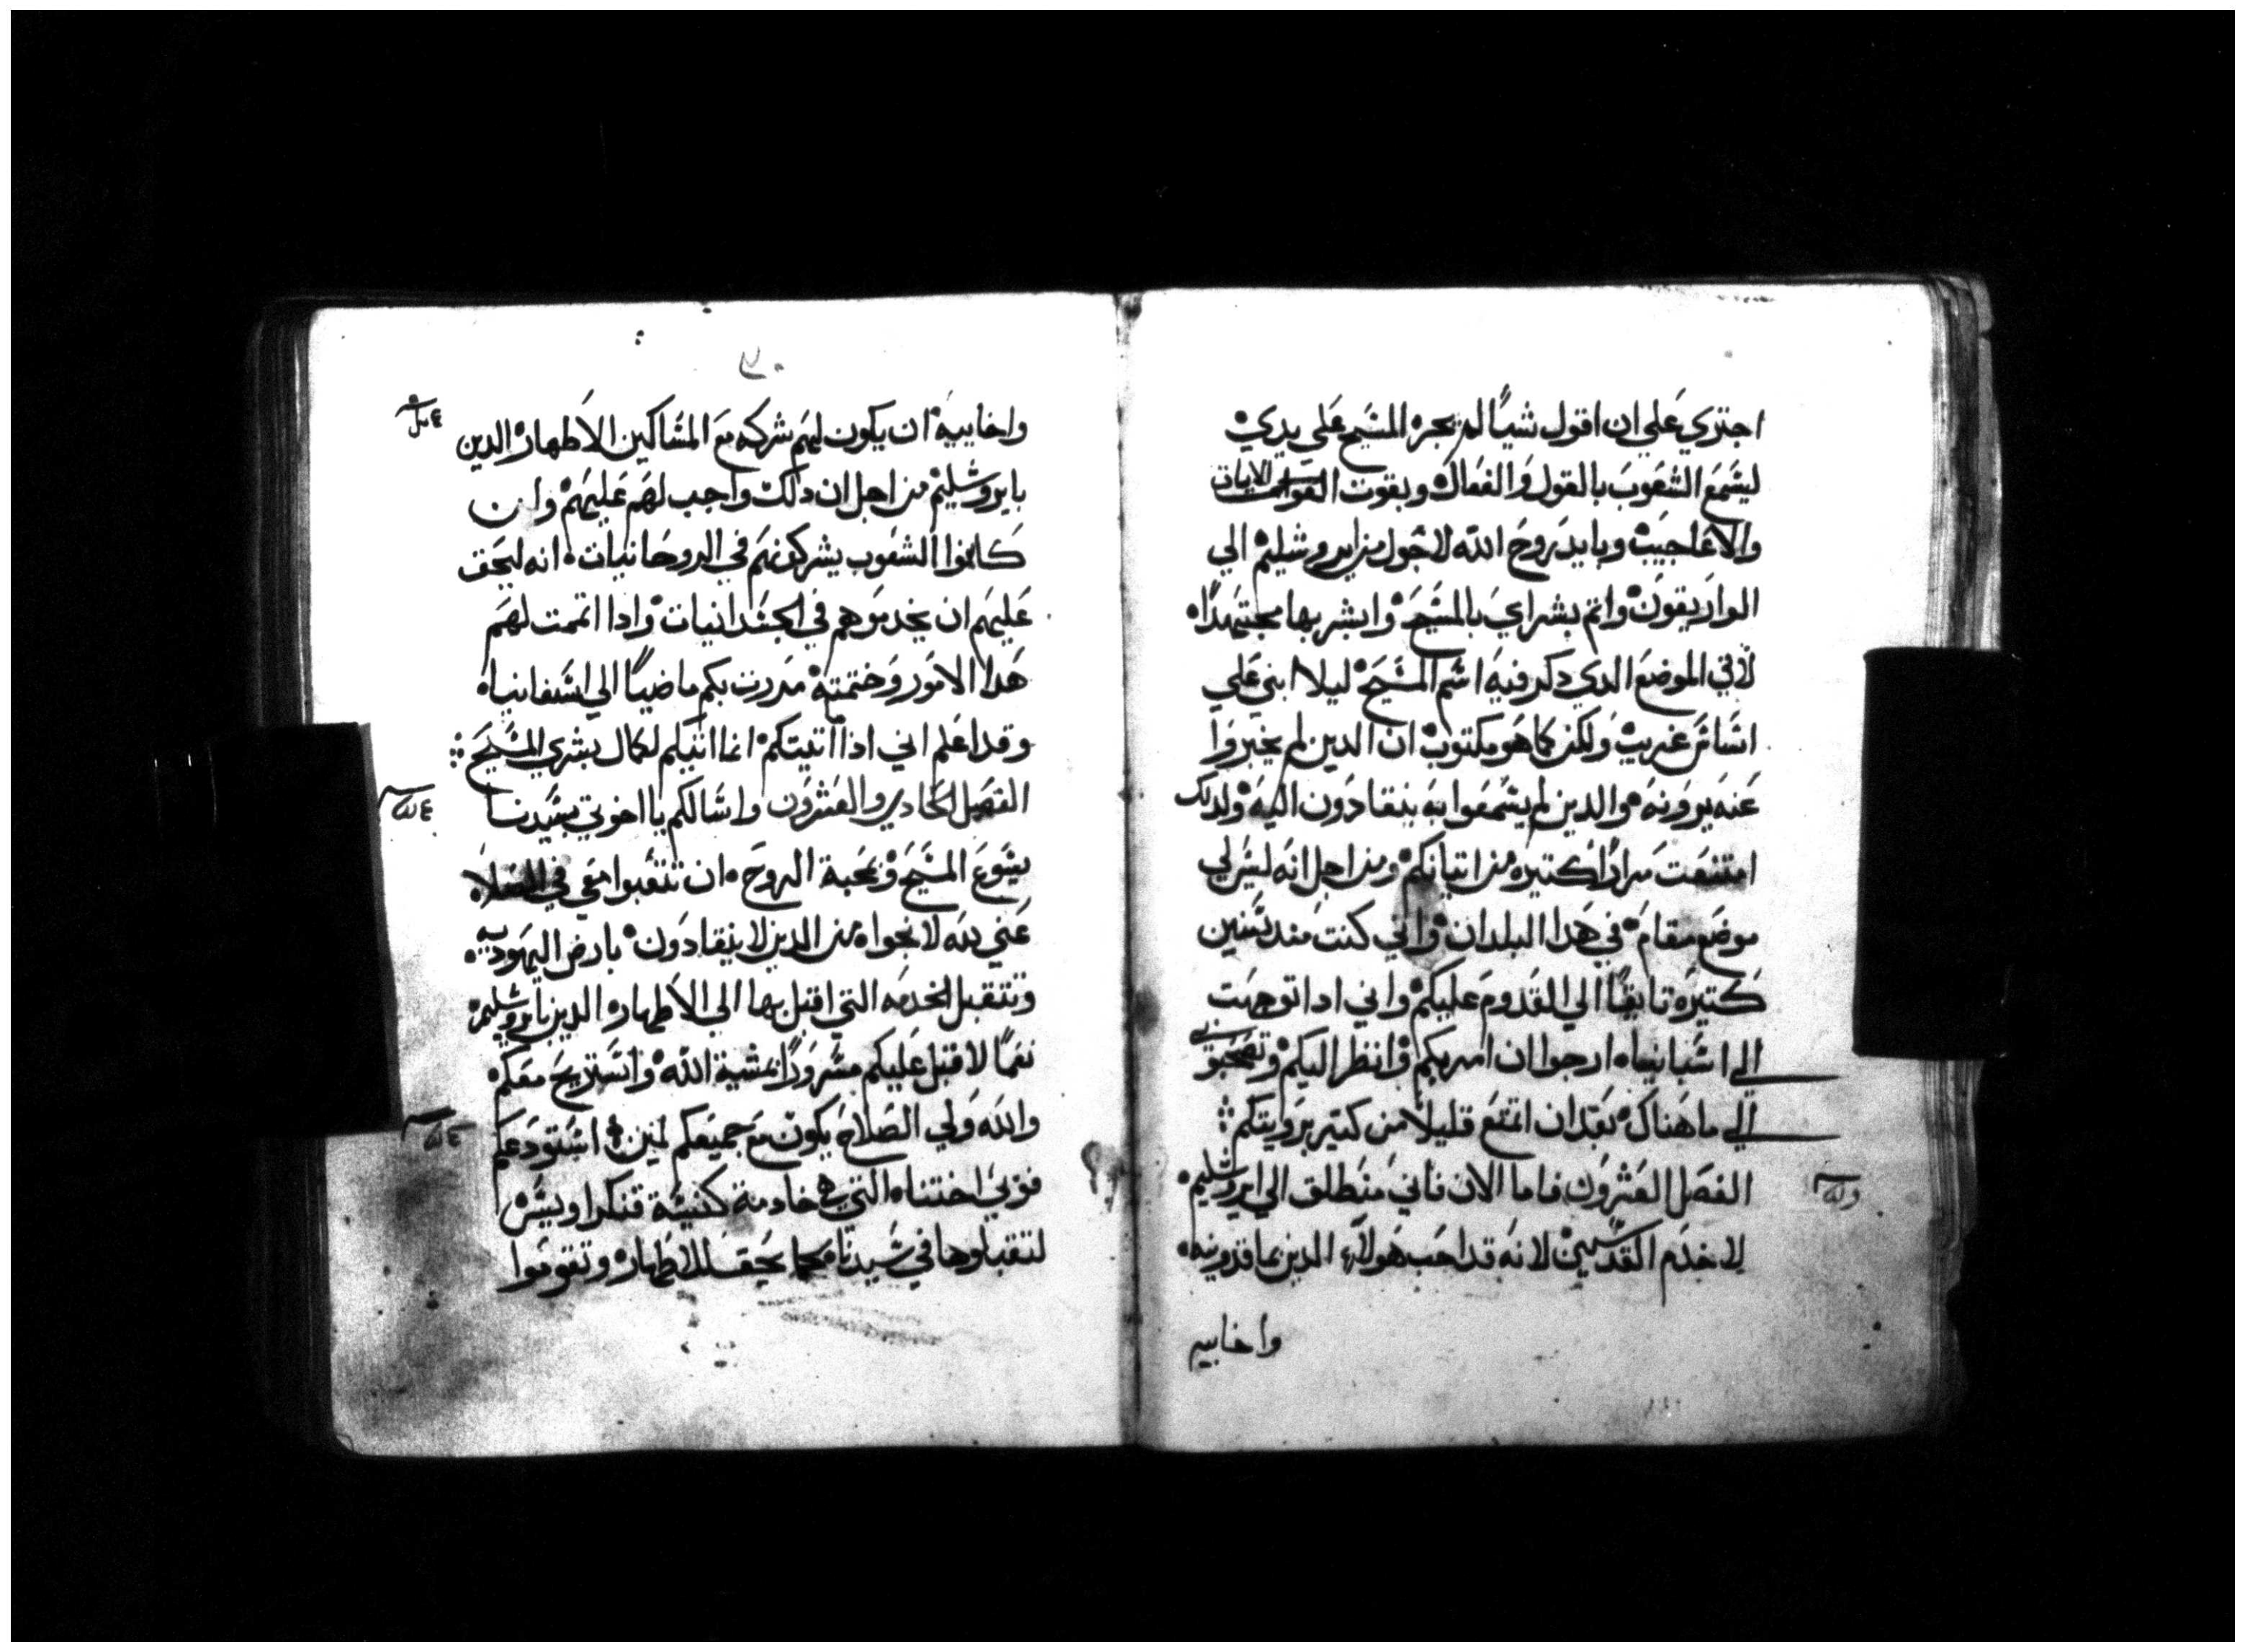 اجتري علي ان اقول شيًا لم يجره المسيح علي يدي
ليسمع الشعوب بالقول والفعال وبقوت الايات
والاعاجيب وبايد روح الله لاجول من ايروشليم الي
الواريقون واتم بشراي بالمسيح وابشر بها مجتهدًا
لا في الموضع الدي دكر فيه اسم المسيح ليلا ابني علي
اساس غريب ولكن كما هو مكتوب ان الدين لم يخبروا
عنه يرونه والدين لم يسمعوا به ينقادون اليه ولدلك
امتنعت مرارًا كتيره من اتيانكم ومن اجل انه ليس لي
موضع مقام في هدا البلدان واني كنت مند سنين
كتيره تايقًا الي القدوم عليكم واني ادا توجهت
الي اسبانياه ارجوا ان امر بكم وانظر اليكم وتصحبوني
الي ما هناك بعد ان اتمتع قليلًا من كتير برويتكم
الفصل العشرون فاما الان فاني منطلق الي ايروشليم
لاخدم القديسين لانه قد احب هولاء الدين بماقدونيه
واخابيه
٧٠
واخابيه ان يكون لهم شركه مع المساكين الاطهار الدين
بايروشليم من اجل ان دلك واجب لهم عليهم وان
كانوا الشعوب يشركونهم في الروحانيات انه ليحق
عليهم ان يخدموهم في الجسدانيات وادا اتممت لهم
هدا الامور وختمته مررت بكم ماضيًا الي اسفانياه
وقد اعلم اني اذا اتيتكم انما اتيكم لكمال بشري المسيح
الفصل الحادي والعشرون واسالكم يا اخوتي بسيدنا
يسوع المسيح وبمحبة الروح ان تتعبوا معي في الصلاه
عني لله لانجوا من الدين لا ينقادون بارض اليهوديه
وتتقبل الخدمه التي اقبل بها الي الاطهار الدين بايروشليم
نعمًا لاقبل عليكم مسرورًا بمشية الله واستريح معكم
والله ولي الصلاح يكون مع جميعكم امين استودعكم
فوبي اختناه التي هي خادمة كنيسة قنكراوييس
لتقبلوها في سيدنا كما يحق للاطهار وتقوموا